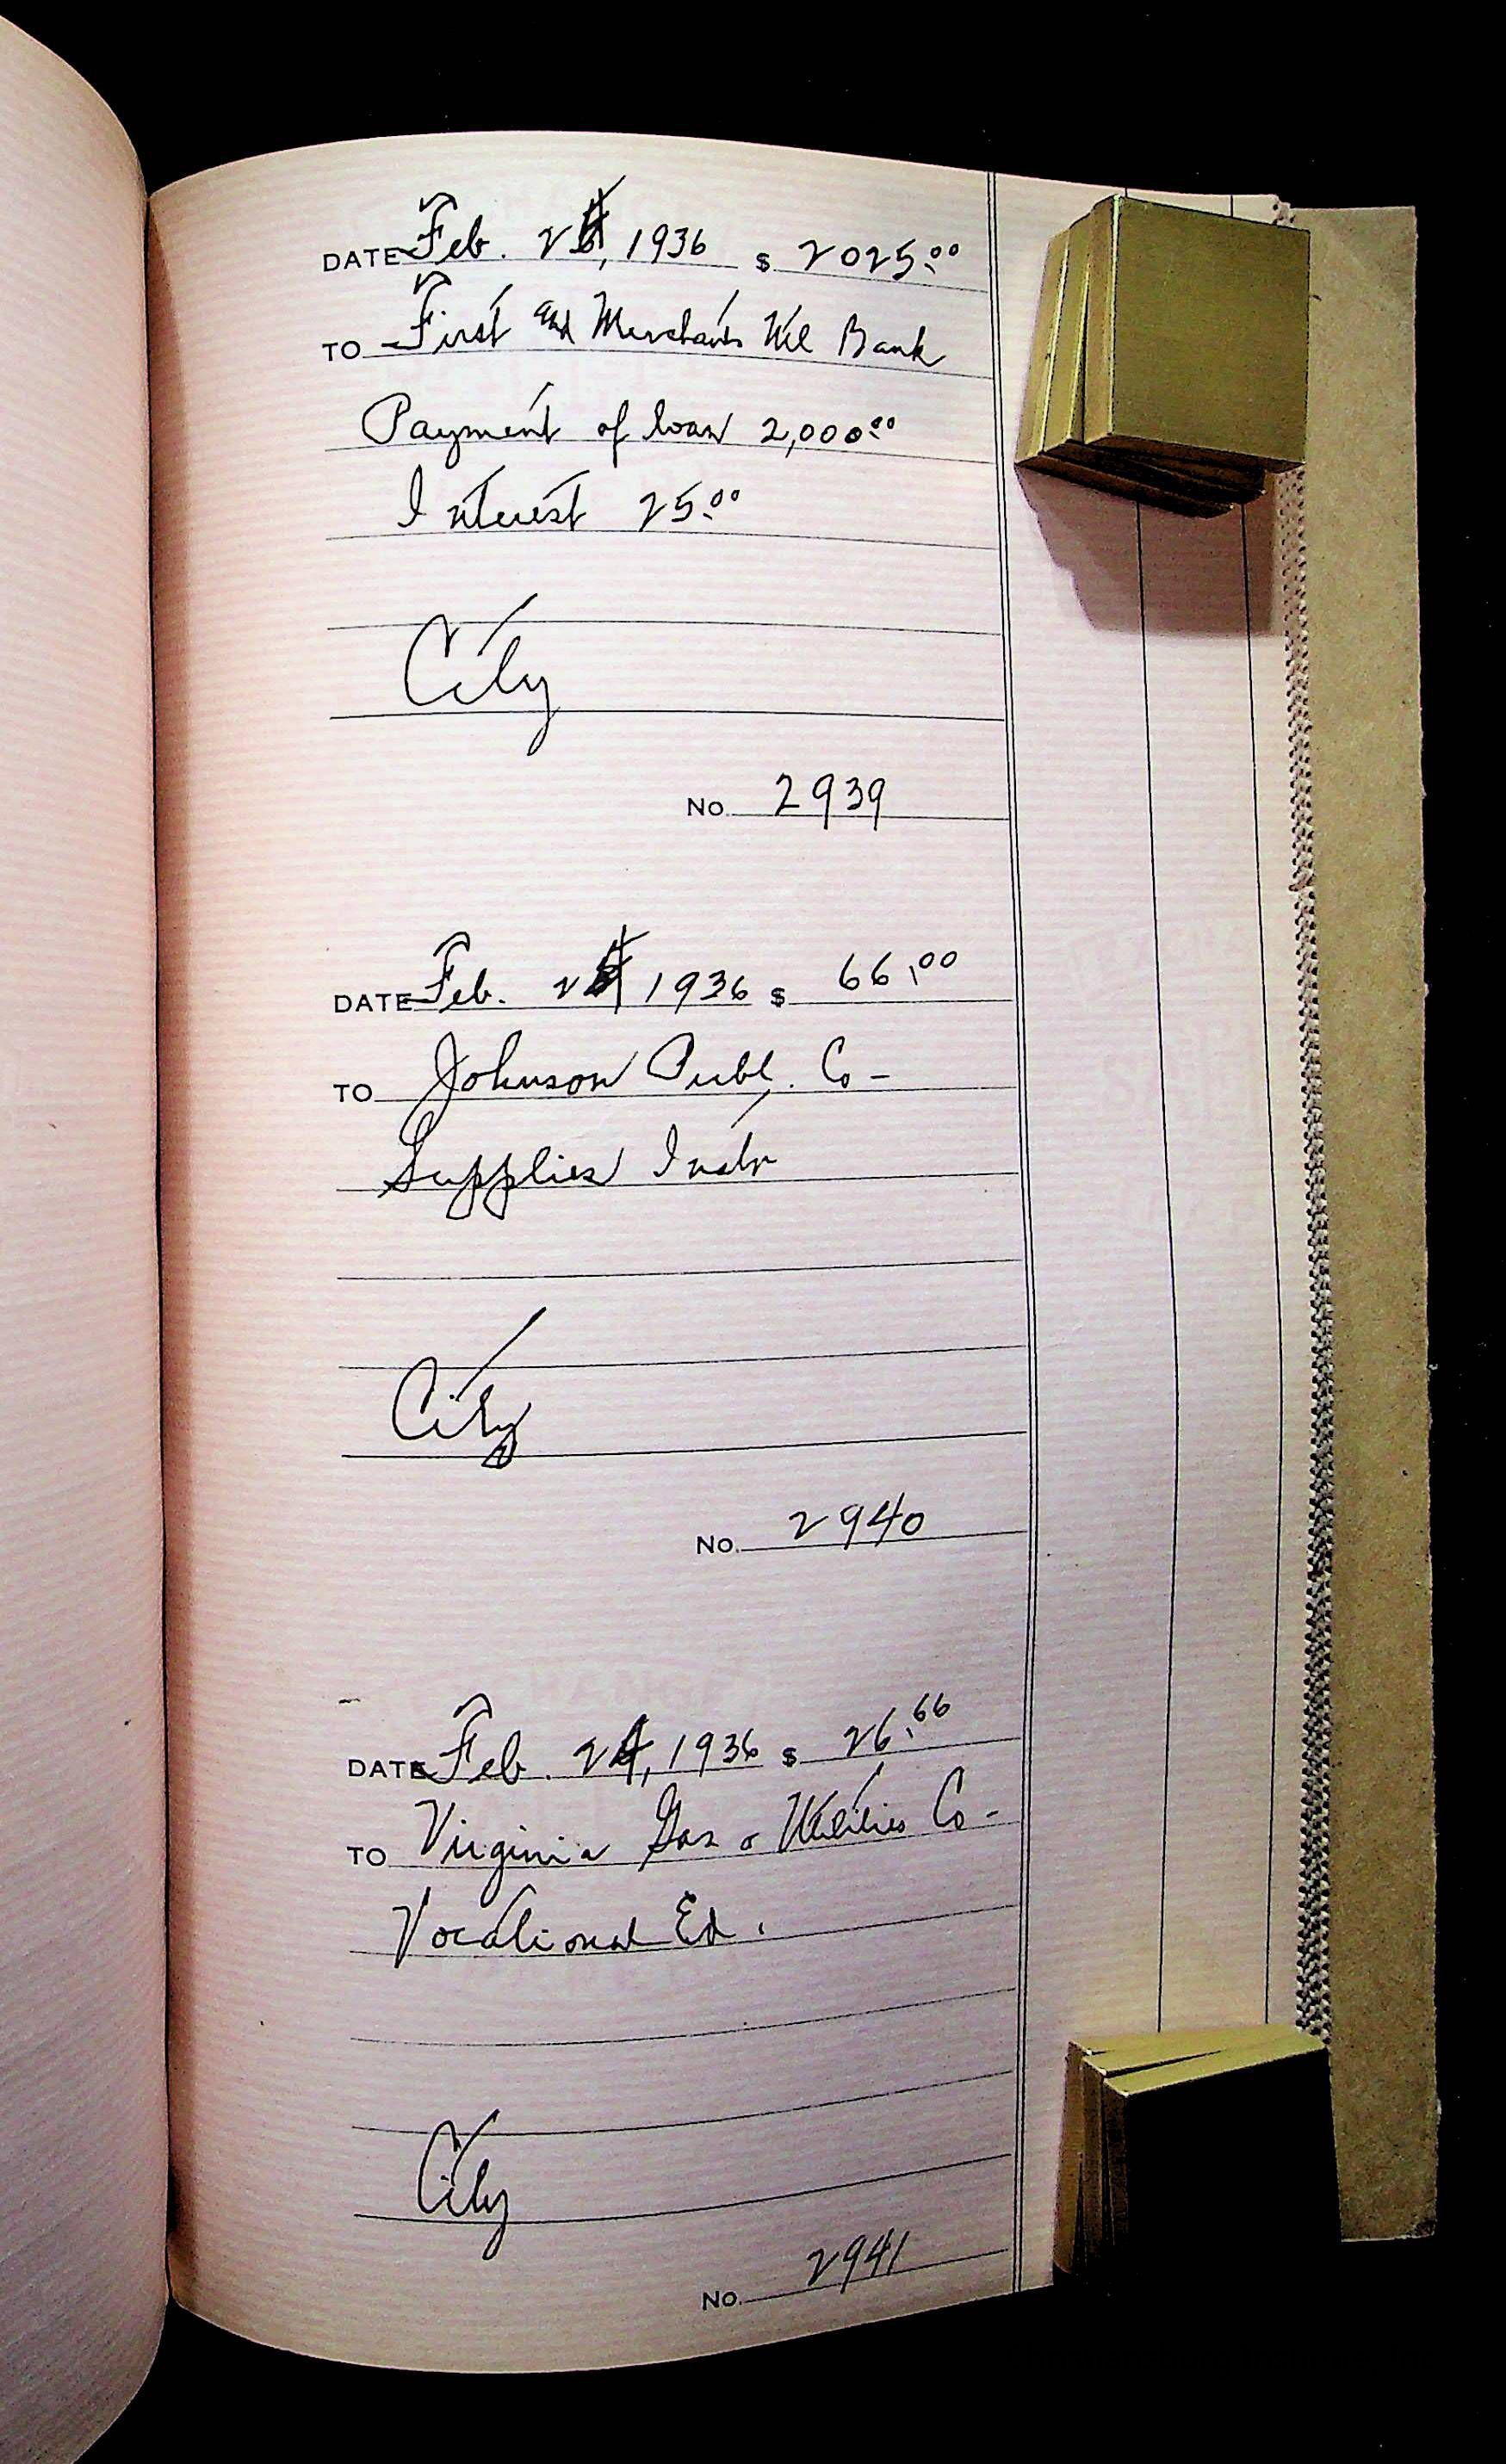 DATE Feb. 24, 1936 $ 2025.00
TO First and Merchants Ntl Bank
Payment of loan 2,000.00
Interest 25.00
City
No. 2939
DATE Feb. 24 1936 $ 66.00
TO Johnson Publ. Co-
Supplies Instr
City
No. 2940
DATE Feb. 24, 1936 $ 26.66
TO Virginia Gas & Utilities Co-
Vocational Ed.
City
No. 2941